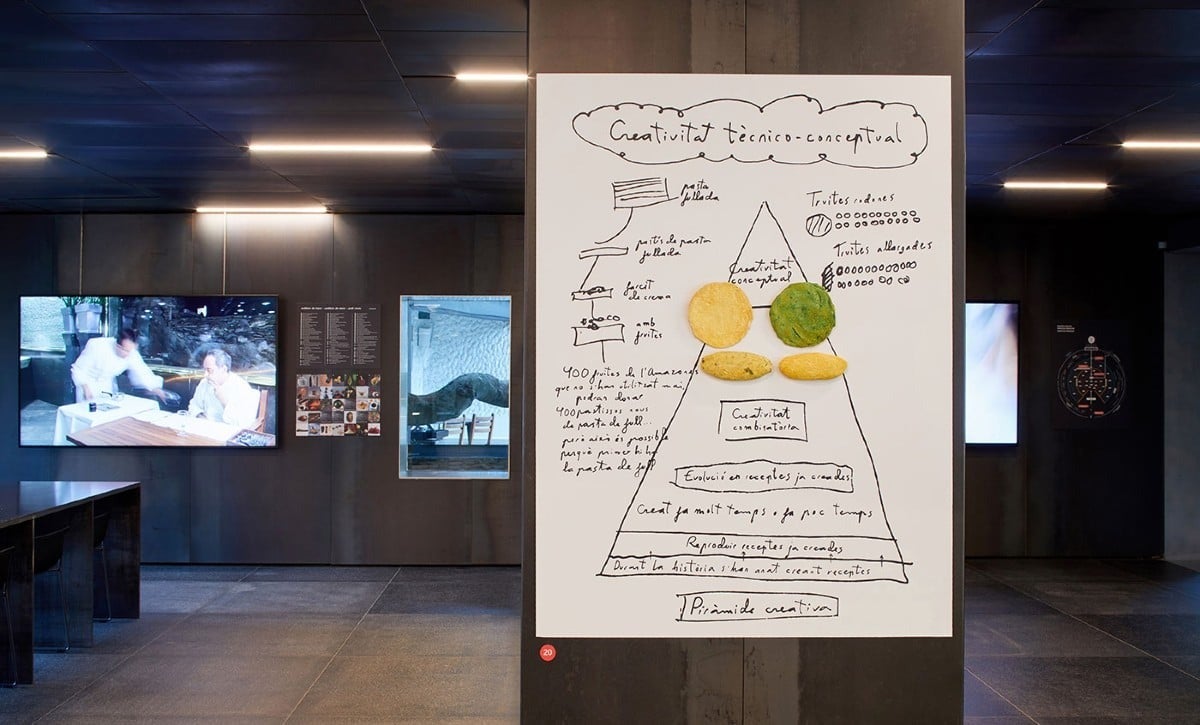 Creativitat tècnico-conceptual
pasta
fullada
pastís de pasta
fullada
farcit
de crema
amb
fruites
Truites rodones
Truites allargades
Creativitat
conceptual
400 fruites de l'Amazones
que no s'han utilitzat mai,
podran donar
400 pastissos nous
de pasta de full...
però això és possible
perquè primer hi ha
la pasta de full
Creativitat
combinatòria
Evolució en receptes ja creades
Creat fa molt temps o fa poc temps
Reproduir receptes ja creades
Durant la història s'han anat creant receptes
Piràmide creativa
20